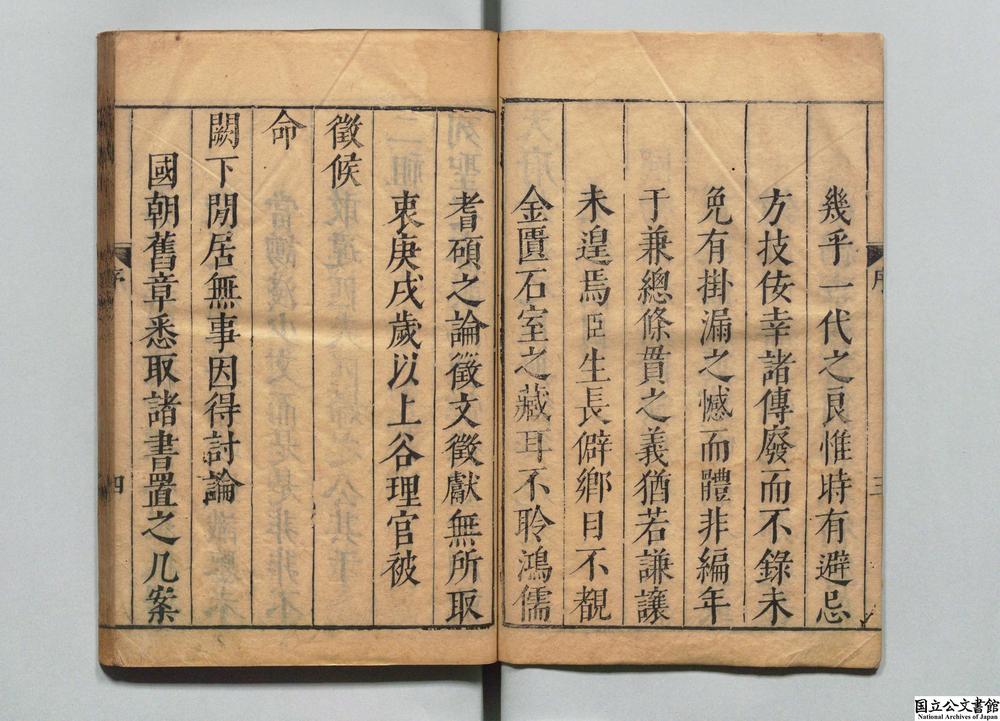 幾乎一代之良惟時有避忌
方技佞幸諸傳廢而不錄未
免有掛漏之憾而體非編年
于兼總條貫之義猶若謙讓
未遑焉臣生長僻鄉目不覩
金匱石室之藏耳不聆鴻儒
序
三
耆碩之論徵文徵獻無所取
衷庚戌歲以上谷理官被
徵候
命
闕下閒居無事因得討論
國朝舊章悉取諸書置之几案
序
四
国立公文書館
National Archives of Japan